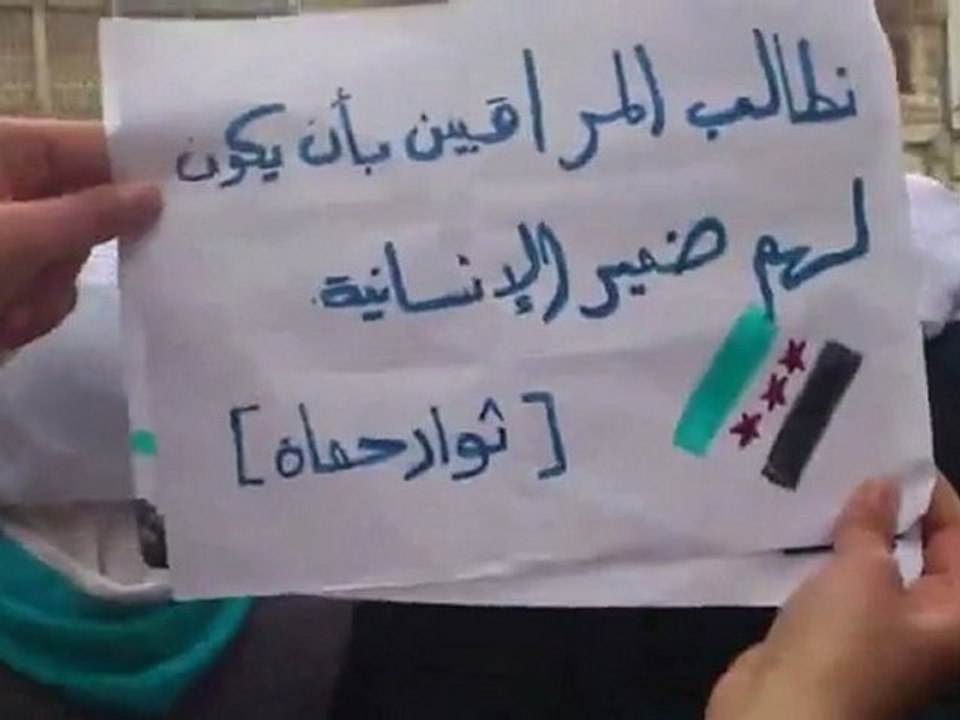 نطالب المراقبين بأن يكون
لهم ضمير الإنسانية.
[ثوار حماة]